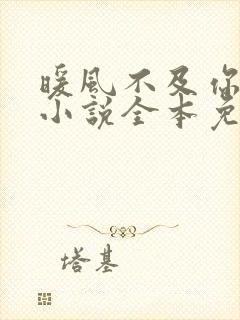 暖风不及你
小说全本免
塔基